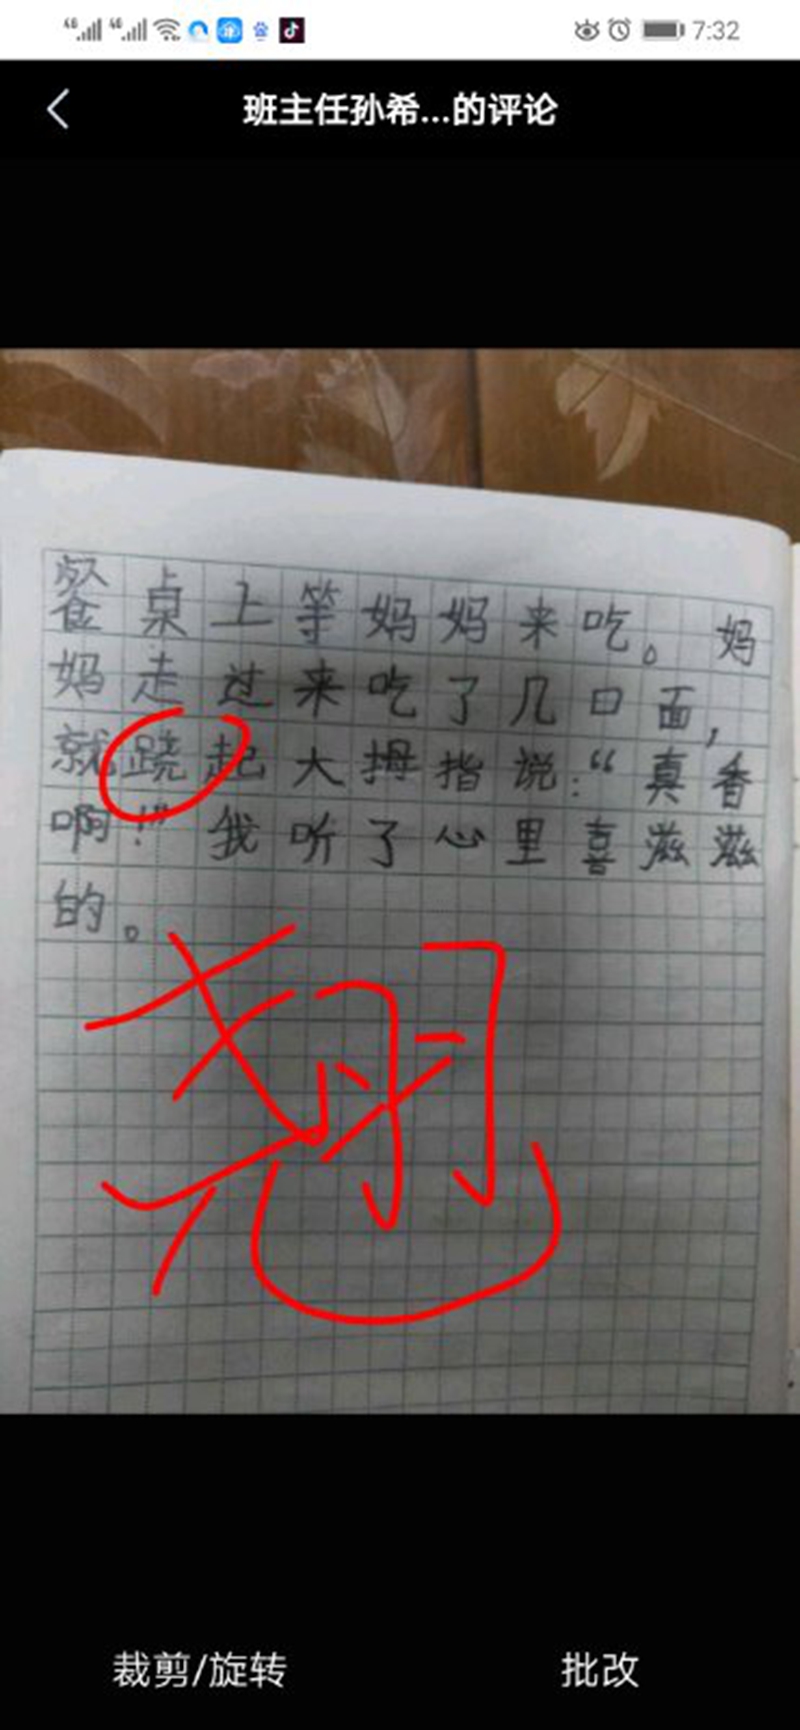 4G 4G 7:32
班主任孙希...的评论
餐桌上等妈妈来吃。妈
妈走过来吃了几口面，
就跷起大拇指说：“真香
啊！”我听了心里喜滋滋
的。
翘
裁剪/旋转 批改